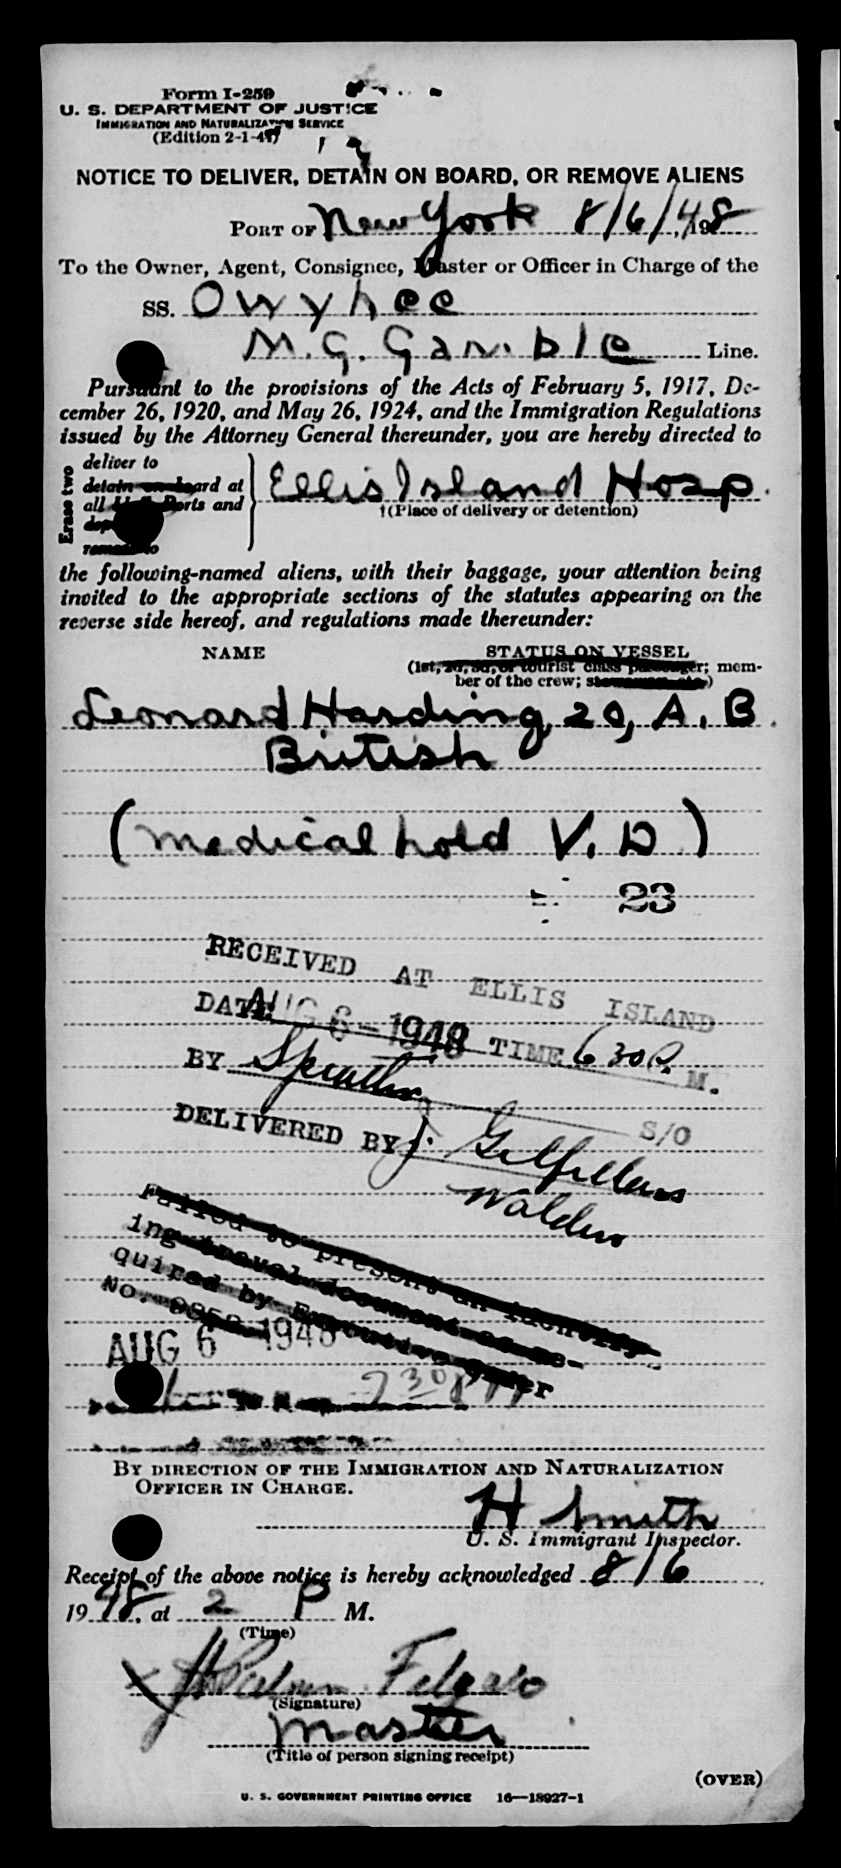 Form I-259
U. S. DEPARTMENT OF JUSTICE
IMMIGRATION AND NATURALIZATION SERVICE
(Edition 2-1-47)
NOTICE TO DELIVER, DETAIN ON BOARD, OR REMOVE ALIENS
PORT OF New York 8/6/48, 19
To the Owner, Agent, Consignee, Master or Officer in Charge of the
SS. Owyhee
M. G. Gamble Line.
Pursuant to the provisions of the Acts of February 5, 1917, De-
cember 26, 1920, and May 26, 1924, and the Immigration Regulations
issued by the Attorney General thereunder, you are hereby directed to
Erase two
deliver to
detain on board at
all Ports and
remove to
Ellis Island Hosp.
†(Place of delivery or detention)
the following-named aliens, with their baggage, your attention being
invited to the appropriate sections of the statutes appearing on the
reverse side hereof, and regulations made thereunder:
NAME STATUS ON VESSEL
(1st, 2d, 3d, or tourist class passenger; mem-
ber of the crew;
Leonard Harding, 20, A. B.
British
(medical hold V. D)
23
RECEIVED AT ELLIS ISLAND
DATE AUG 6 - 1948 TIME 6 30 P. M.
BY S/O
DELIVERED BY J. Gilfillan
Walden
Failed to present an identify-
ing travel document as re-
quired by Executive Order
No.
AUG 6 1948
7 30 PM
BY DIRECTION OF THE IMMIGRATION AND NATURALIZATION
OFFICER IN CHARGE.
H Smith
U. S. Immigrant Inspector.
Receipt of the above notice is hereby acknowledged 8/6
1948, at 2 P M.
(Time)
(Signature)
Master
(Title of person signing receipt)
(OVER)
U. S. GOVERNMENT PRINTING OFFICE 16—18927-1